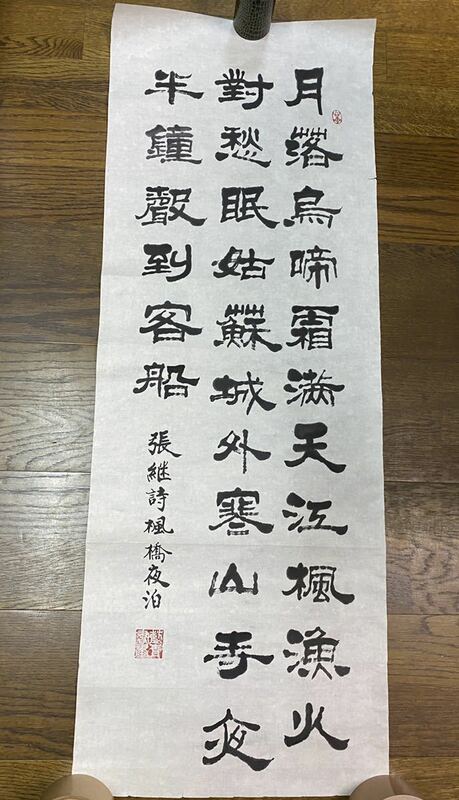 月落烏啼霜滿天江楓漁火
對愁眠姑蘇城外寒山寺夜
半鐘聲到客船
張継詩楓橋夜泊